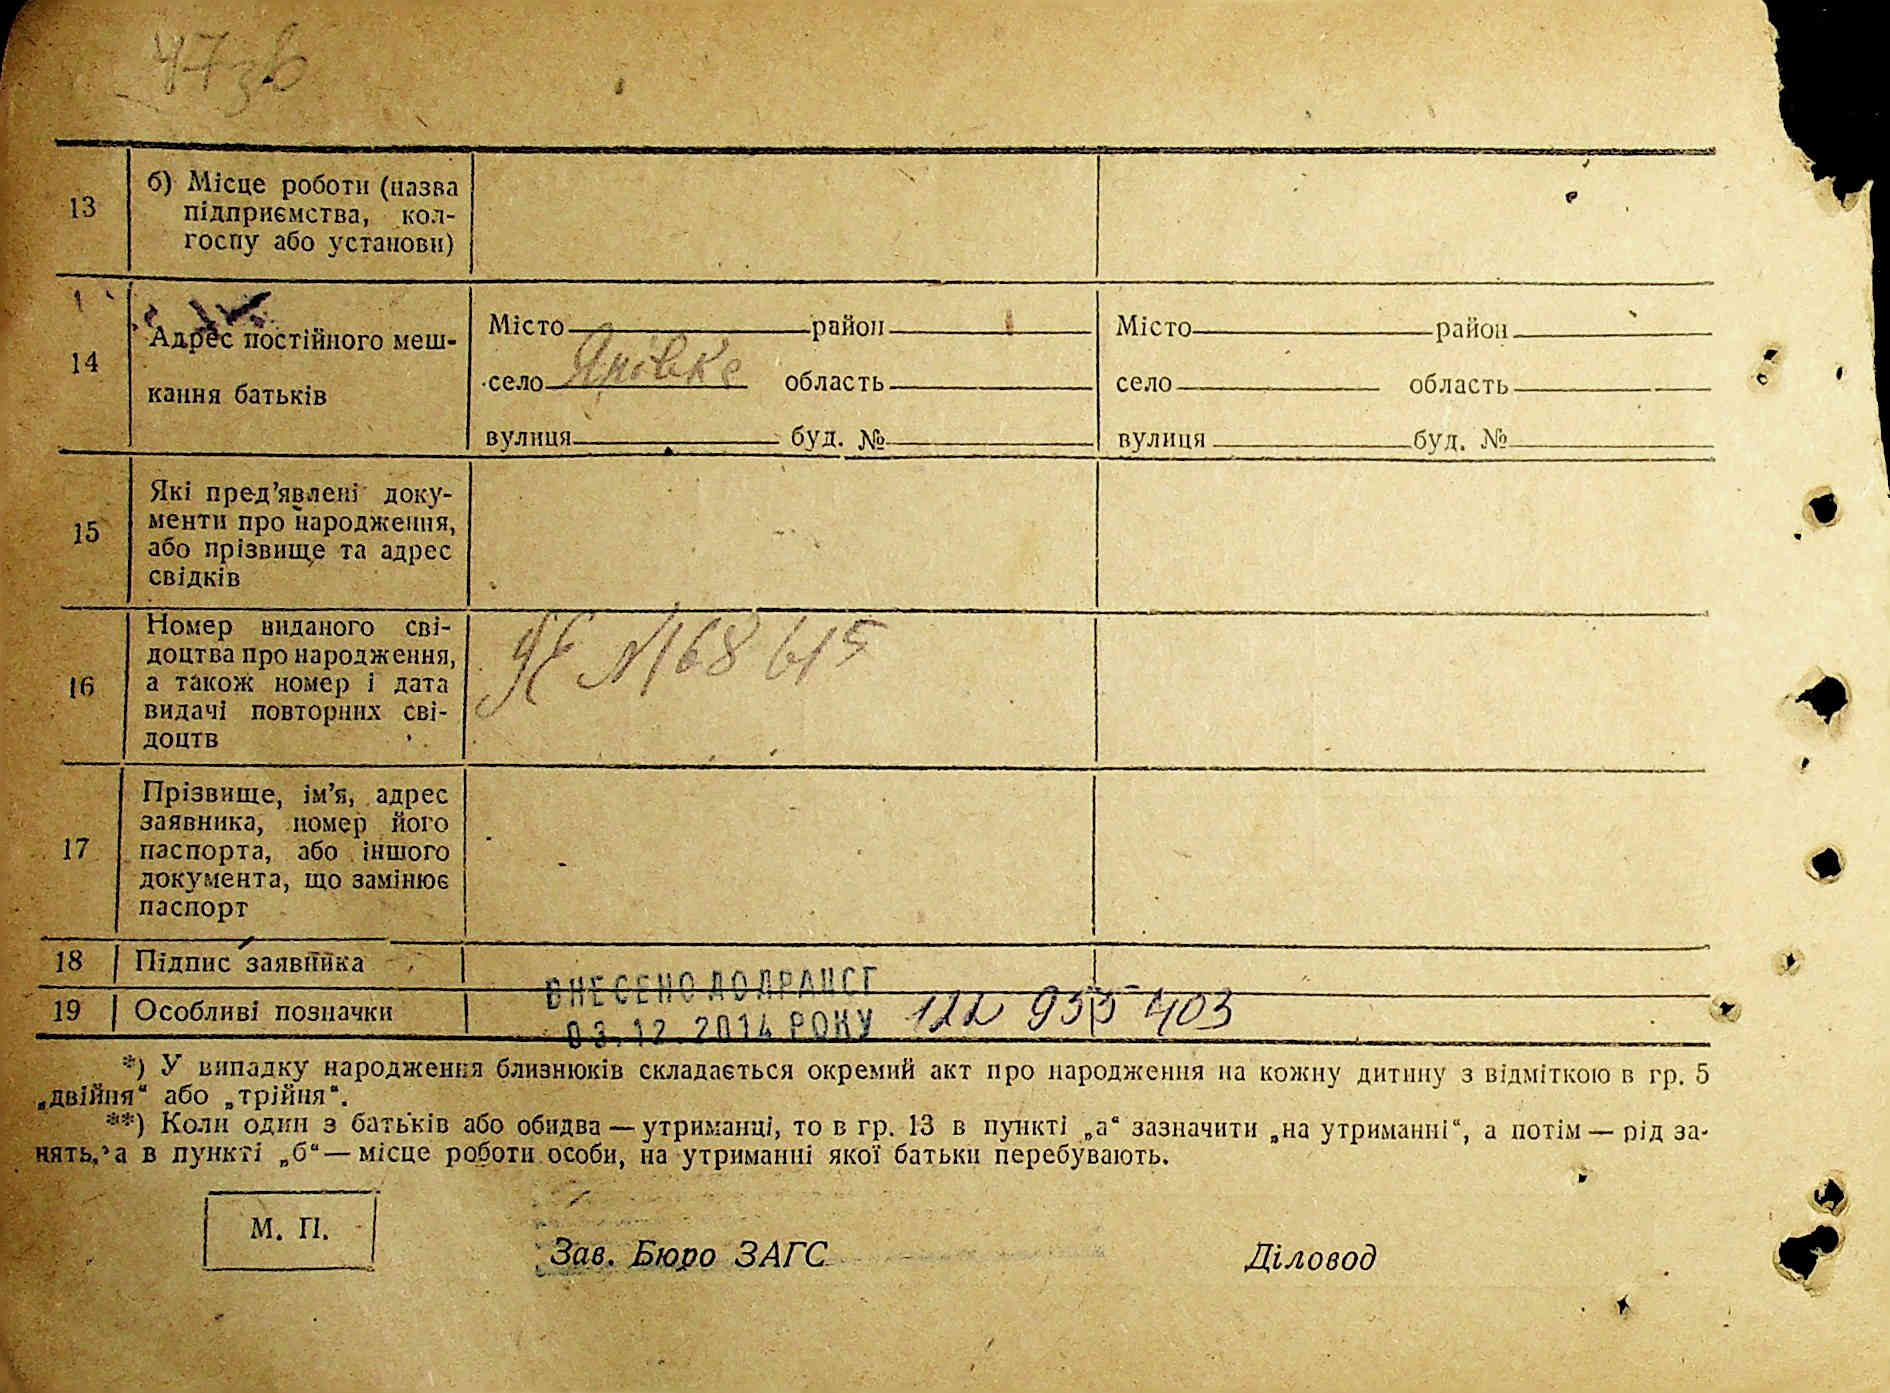 47 зв
13
б) Місце роботи (назва
підприємства, кол-
госпу або установи)
14
Адрес постійного меш-
кання батьків
Місто район
село Янівка область
вулиця буд. №
Місто район
село область
вулиця буд. №
15
Які пред’явлені доку-
менти про народження,
або прізвище та адрес
свідків
16
Номер виданого сві-
доцтва про народження,
а також номер і дата
видачі повторних сві-
доцтв
№ 168615
17
Прізвище, ім’я, адрес
заявника, номер його
паспорта, або іншого
документа, що замінює
паспорт
18 Підпис заявника
19 Особливі позначки
ВНЕСЕНО ДО ДРАЦСГ
03.12.2014 РОКУ 122 955 403
*) У випадку народження близнюків складається окремий акт про народження на кожну дитину з відміткою в гр. 5
„двійня“ або „трійня“.
**) Коли один з батьків або обидва — утриманці, то в гр. 13 в пункті „а“ зазначити „на утриманні“, а потім — рід за-
нять, а в пункті „б“ — місце роботи особи, на утриманні якої батьки перебувають.
М. П.
Зав. Бюро ЗАГС Діловод